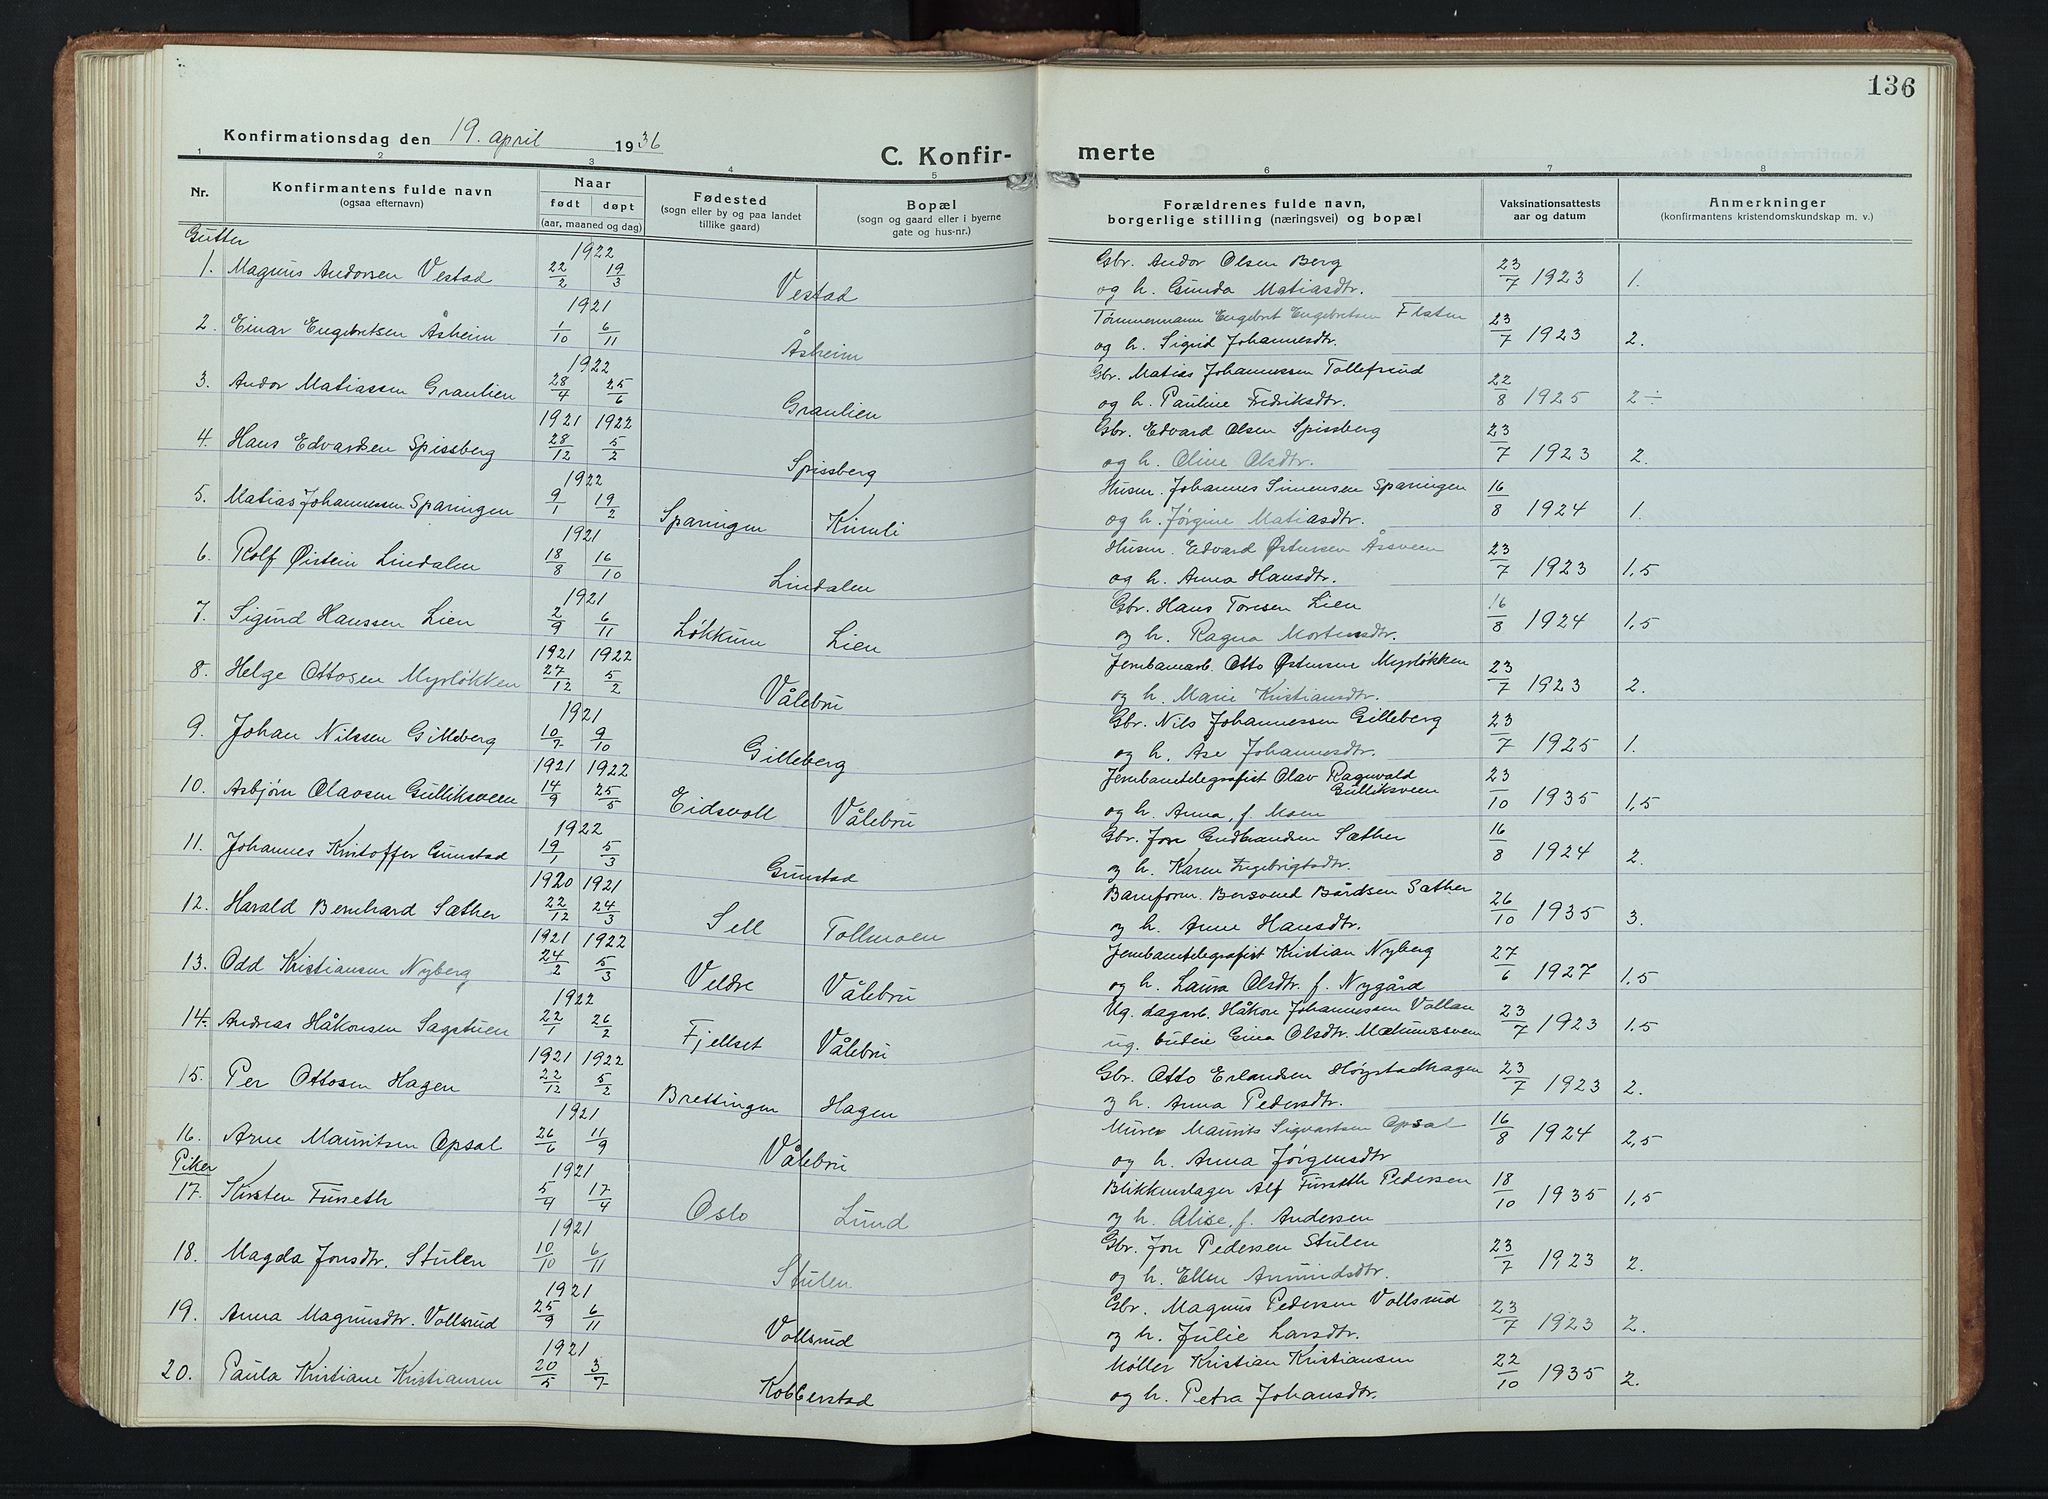 136
Konfirmationsdag den 19. april 1936
C. Konfir- merte
1 2 3 4 5 6 7 8
Nr. Konfirmantens fulde navn (ogsaa efternavn) Naar født døpt (aar, maaned og dag) Fødested (sogn eller by og paa landet tillike gaard) Bopæl (sogn og gaard eller i byerne gate og hus-nr.) Forældrenes fulde navn, borgerlige stilling (næringsvei) og bopæl Vaksinationsattests aar og datum Anmerkninger (konfirmantens kristendomskundskap m. v.)
Gutter
1922 Gbr. Andor Olsen Berg
1. Magnus Andorsen Vestad 22/2 19/3 Vestad og h. Gunda Matiasdtr. 23/7 1923 1.
1921 Tømmermann Engebret Engebretsen Flaten
2. Einar Engebretsen Åsheim 1/10 6/11 Åsheim og h. Sigrid Johannesdtr. 23/7 1923 2.
1922 Gbr. Matias Johannessen Tollefsrud
3. Andor Matiassen Graulien 28/4 25/6 Graulien og h. Pauline Fredriksdtr. 22/8 1925 2÷
1921 1922 Gbr. Edvard Olsen Spissberg
4. Hans Edvardsen Spissberg 28/12 5/2 Spissberg og h. Oline Olsdtr. 23/7 1923 2.
1922 Husm. Johannes Simensen Sparingen
5. Matias Johannessen Sparingen 9/1 19/2 Sparingen Kimli og h. Jørgine Matiasdtr. 16/8 1924 1.
1921 Husm. Edvard Østensen Åssveen
6. Rolf Øistein Lindalen 18/8 16/10 Lindalen og h. Anna Hansdtr. 23/7 1923 1,5
1921 Gbr. Hans Toresen Lien
7. Sigurd Hanssen Lien 2/9 6/11 Løkkum Lien og h. Ragna Mortensdtr. 16/8 1924 1,5
1921 1922 Jernbanearb. Otto Østensen Myrløkken
8. Helge Ottosen Myrløkken 27/12 5/2 Vålebru og h. Marie Kristiansdtr. 23/7 1923 2.
1921 Gbr. Nils Johannessen Gilleberg
9. Johan Nilssen Gilleberg 10/7 9/10 Gilleberg og h. Åse Johannesdtr. 23/7 1925 1.
1921 1922 Jernbanetelegrafist Olav Ragnvald Gulliksveen
10. Asbjørn Olavsen Gulliksveen 14/9 25/5 Eidsvoll Vålebru og h. Anna, f. Moen 23/10 1935 1,5
1922 Gbr. Jon Gudbrandsen Sæther
11. Johannes Kristoffer Gunstad 19/1 5/3 Gunstad og h. Karen Engebrigtsdtr. 16/8 1924 2.
1920 1921 Baneform. Bersvend Bårdsen Sæther
12. Harald Bernhard Sæther 22/12 24/3 Sell Tollmoen og h. Anne Hansdtr. 26/10 1935 3.
1921 1922 Jernbanetelegrafist Kristian Nyberg
13. Odd Kristiansen Nyberg 24/2 5/3 Veldre Vålebru og h. Laura Olsdtr. f. Nygård 27/6 1927 1,5
1922 Ug. dagarb. Håkon Johannessen Vollan
14. Andreas Håkonsen Sagstuen 22/1 26/2 Fjellset Vålebru ug. budeie Gina Olsdtr. Mæhumssveen 23/7 1923 1,5
1921 1922 Gbr. Otto Erlandsen Høystadhagen
15. Per Ottosen Hagen 22/12 5/2 Brettingen Hagen og h. Anna Pedersdtr. 23/7 1923 2.
1921 Murer Maurits Sigvartsen Opsal
16. Arne Mauritsen Opsal 26/6 11/9 Vålebru og h. Anna Jørgensdtr 16/8 1924 2,5
Piker
1921 Blikkenslager Alf Furseth Pedersen
17. Kirsten Furseth 5/4 17/4 Oslo Lund og h. Alise, f. Andersen 18/10 1935 1,5
1921 Gbr. Jon Pedersen Stulen
18. Magda Jonsdtr. Stulen 10/10 6/11 Stulen og h. Ellen Amundsdtr. 23/7 1923 2.
1921 Gbr. Magnus Pedersen Vollsrud
19. Anna Magnusdtr. Vollsrud 25/9 6/11 Vollsrud og h. Julie Larsdtr. 23/7 1923 2.
1921 Møller Kristian Kristiansen
20. Paula Kristiane Kristiansen 20/5 3/7 Kobberstad og h. Petra Johansdtr. 22/10 1935 2.